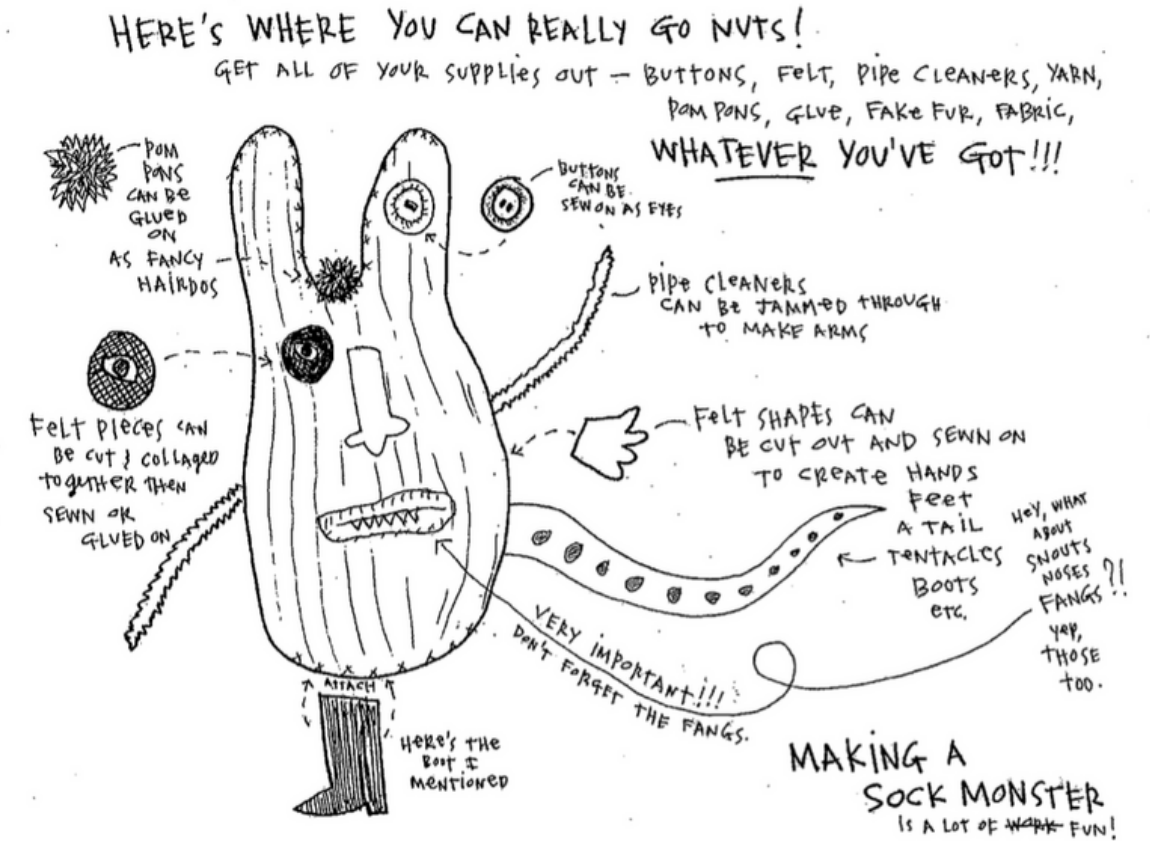 HERE'S WHERE YOU CAN REALLY GO NUTS!
GET ALL OF YOUR SUPPLIES OUT — BUTTONS, FELT, PIPE CLEANERS, YARN,
POM PONS, GLUE, FAKE FUR, FABRIC,
WHATEVER YOU'VE GOT!!!
POM
PONS
CAN BE
GLUED
ON
AS FANCY
HAIRDOS
BUTTONS
CAN BE
SEW ON AS EYES
PIPE CLEANERS
CAN BE JAMMED THROUGH
TO MAKE ARMS
FELT PIECES CAN
BE CUT & COLLAGED
TOGETHER THEN
SEWN OR
GLUED ON
FELT SHAPES CAN
BE CUT OUT AND SEWN ON
TO CREATE HANDS
FEET
A TAIL
TENTACLES
BOOTS
ETC.
HEY, WHAT
ABOUT
SNOUTS
NOSES
FANGS?!
YEP,
THOSE
TOO.
VERY IMPORTANT!!!
DON'T FORGET THE FANGS.
ATTACH
HERE'S THE
BOOT I
MENTIONED
MAKING A
SOCK MONSTER
IS A LOT OF WORK FUN!